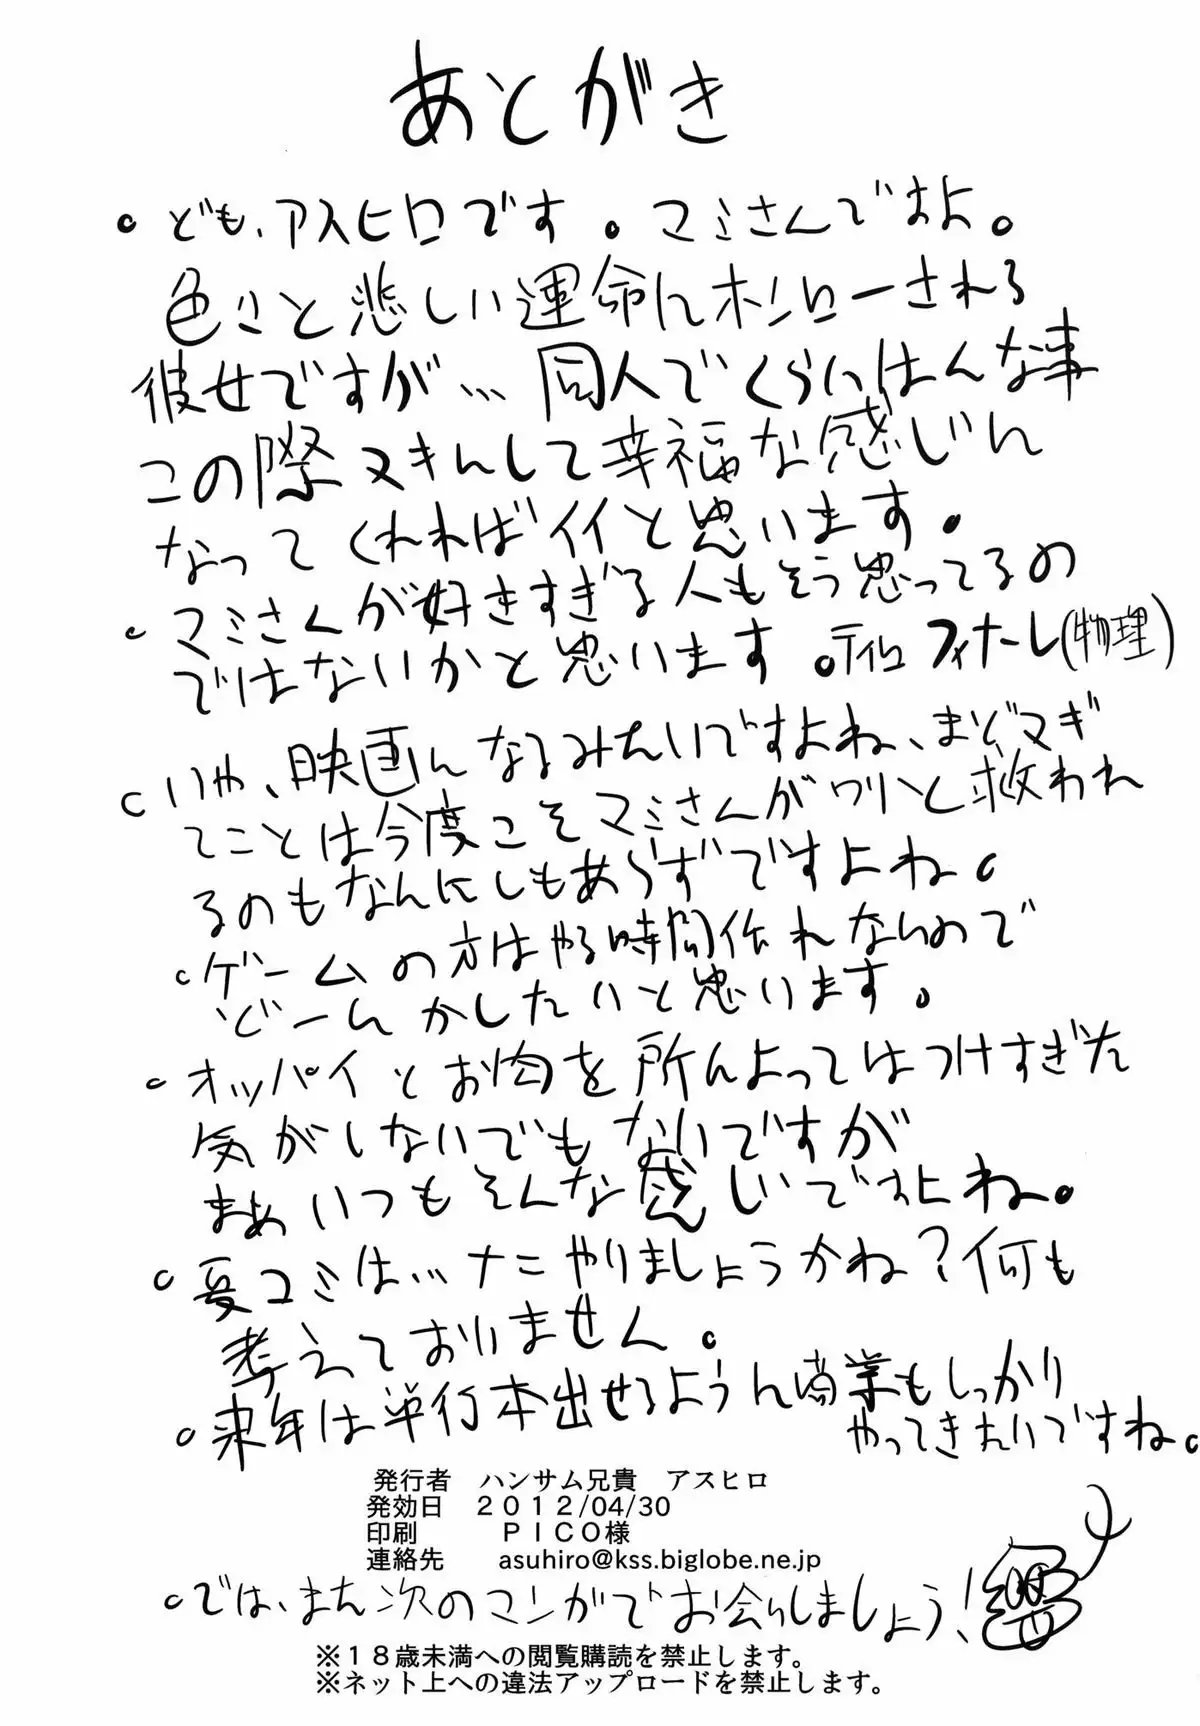 あとがき
。ども、アスヒロです。マミさんですよ。
色々と悲しい運命にホンローされる
彼女ですが…同人でくらいはんな事
この際ヌキにして幸福な感じに
なってくれればイイと思います。
。マミさんが好きすぎる人もそう思ってるの
ではないかと思います。ティロフィナーレ(物理)
。いや、映画になるみたいですよね、まどマギ
てことは今度こそマミさんがワリと救われ
るのもなんにしもあらずですよね。
。ゲームの方はやる時間作れないので
どーにかしたいと思います。
。オッパイとお肉を所によってはつけすぎた
気がしないでもないですが
まぁいつもそんな感じですよね。
。夏コミは…ナニやりましょうかね?何も
考えておりません。
。来年は単行本出せるように商業もしっかり
やってきたいですね。
発行者 ハンサム兄貴 アスヒロ
発効日 2012/04/30
印刷 PICO様
連絡先 asuhiro@kss.biglobe.ne.jp
。では、また次のマンガでお会いしましょう!
※18歳未満への閲覧購読を禁止します。
※ネット上への違法アップロードを禁止します。